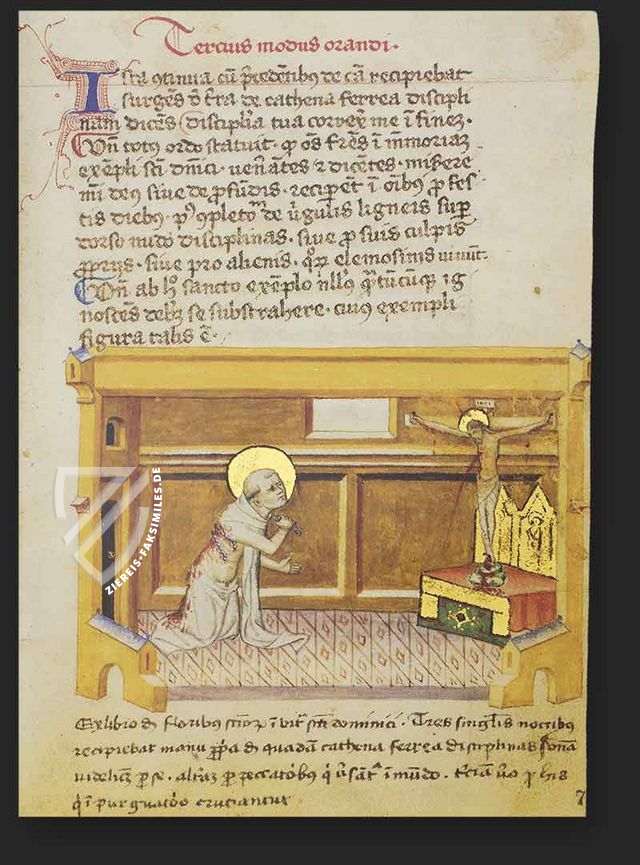 Tercius modus orandi.
Ista ꝯtinua cū p̄cedētibꝰ de cā recipiebat
surgēs ỏ t̄ra de cathena ferrea discipli
nam dicēs (disciplīa tua correx̄ me ī finez.
Vn̄ totꝰ ordo statuit. ꝙ oēs fr̄es ī memoriaz
exēpli sc̄i dn̄ici. uen̄ātes ⁊ dicētes. misere
mī deꝰ siue de ꝓfūdis. recipet̄ ī oībꝰ ꝓ fes
tis diebꝰ. pꝰ ꝯpletoꝝ de ūgulis ligneis sup̄
dorso nudo disciplinas. siue ꝓ suis culpis
ꝓprijs. siue pro alienis. qoꝝ elemosinis uiuūt.
Vn̄ ab hꝰ sancto exēplo nll̓ꝰ qͣtūcūꝙ ig
noscēs debꝫ se substrahere. cuiꝰ exempli
figura talis ē.
INRI
Ex libro ỏ floribus sc̄oꝝ ī uita sc̄i dominici. Tres singl̓is noctibus
recipiebat manu ꝓp̄a ỏ quadā cathena ferrea disciplinas
uidelicꝫ p̄ se. altāz ꝓ peccatōbꝰ q̓ ūsāt̄ ī mūdo. Terciā ūo ꝓ his
q̓ ī purgatōo cruciantur
7
ZIEREIS-FAKSIMILES.DE